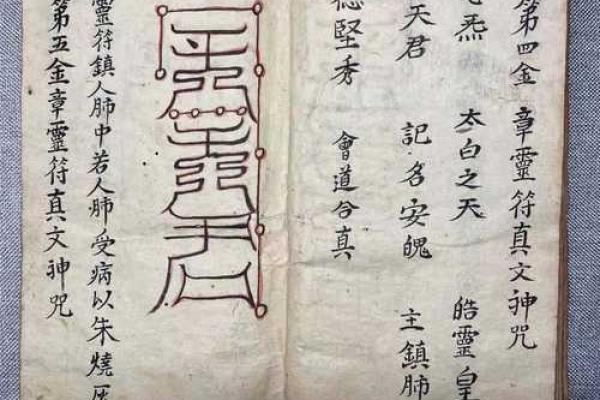 第四金 章靈符真文神咒
炁 太白之天 皓靈皇
天君 記名安魄 主鎮肺
德堅秀 會道合真
靈符鎮人肺中若人肺受病以朱燒
第五金章靈符真文神咒